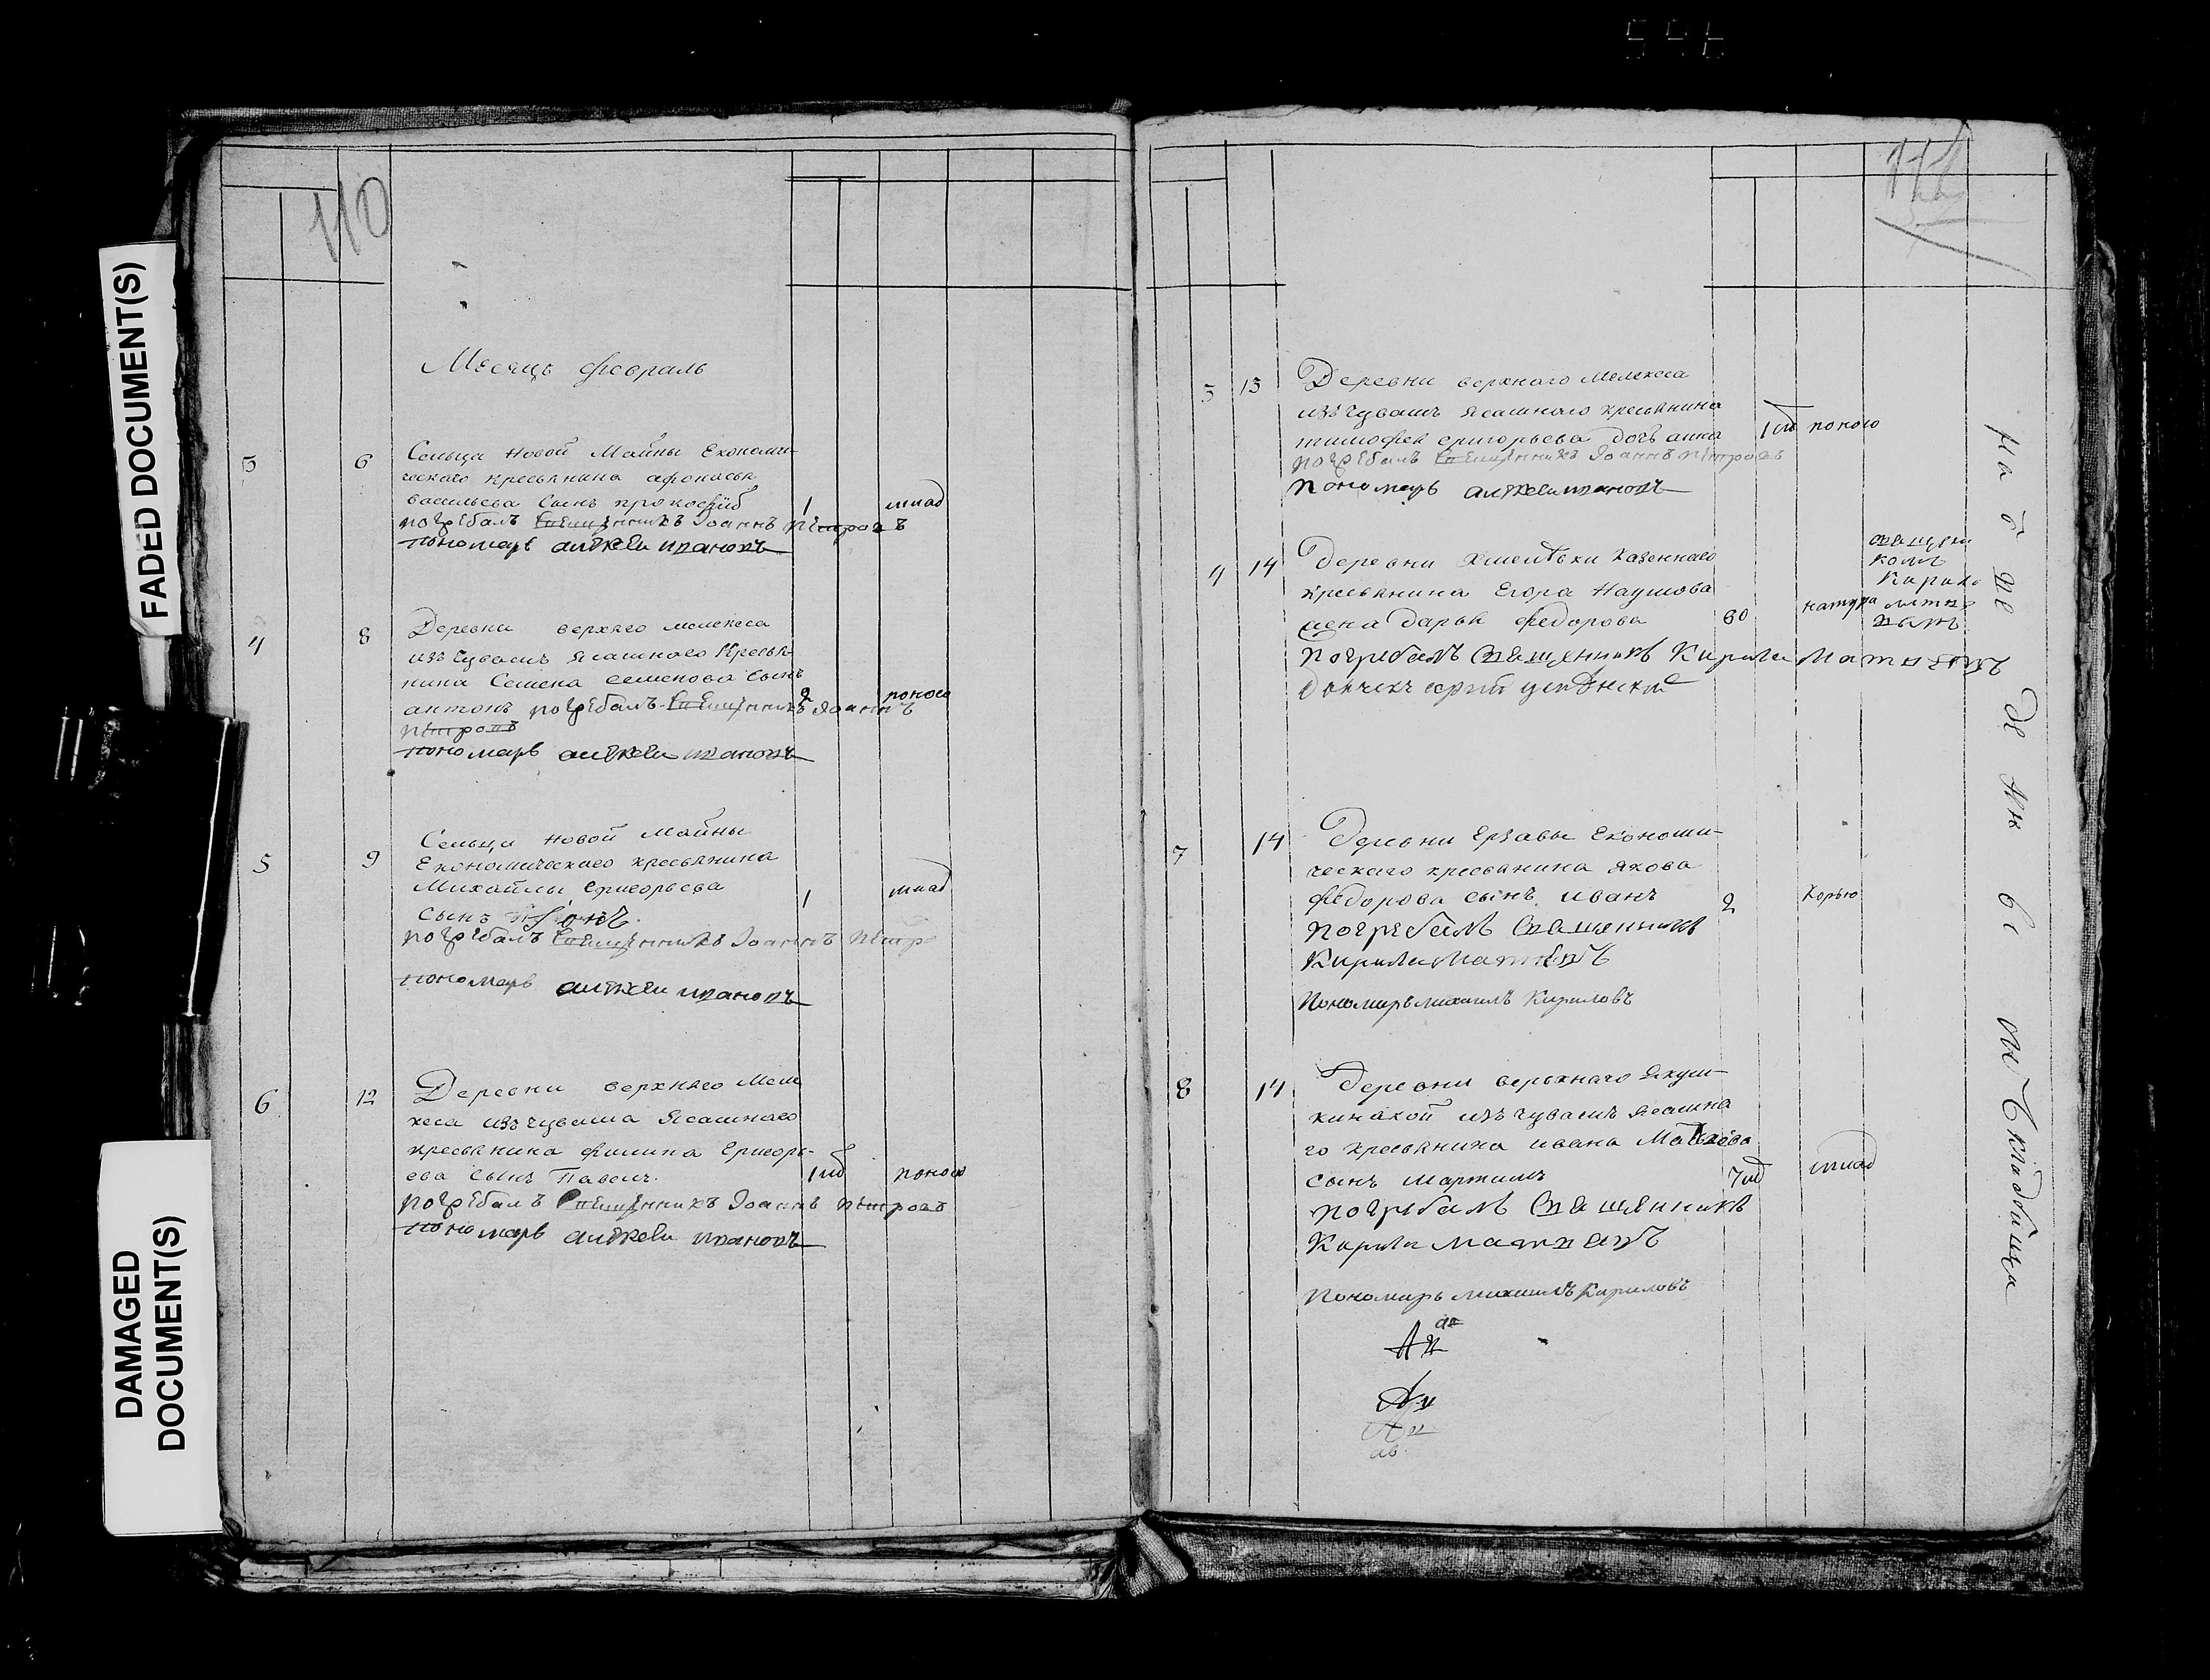 546
FADED DOCUMENT(S)
DAMAGED
DOCUMENT(S)
110
Месяцъ февраль
3 6 Сельца Новой Майны Економи-
ческаго кресьянина афонасья
васильева сынъ прокофий 1 младе
погребалъ Священникъ Іоаннъ Петровъ
пономарь алѣксѣи ивановъ
4 8 Деревни верхяго мелекеса
изъ чувашъ Ясашнаго Кресья-
нина Семена семенова сынъ 2 поносо
антонъ погребалъ Священникъ Іоаннъ
Петровъ
пономарь алѣксѣи ивановъ
5 9 Сельца Новой Майны
Економическаго кресьянина
Михайлы Григорьева 1 младе
сынъ
погребалъ Священникъ Іоаннъ Петро
пономарь алѣксѣи ивановъ
6 12 Деревни верхняго Меле
кеса изъ чуваша Ясашнаго
кресьянина Филипа Григорь-
ева сынъ Павелъ 1 поносо
погребалъ Священникъ Іоаннъ Петровъ
пономарь алѣксѣи ивановъ
111
5 13 Деревни верхнаго Мелекеса
изъ чувашъ Ясашнаго кресьянина
тимофея григорьева дочь анна 1 поносо
погребалъ Священникъ Іоаннъ Петровъ
пономарь алѣксѣи ивановъ
4 14 Деревни Хмелѣвки казеннаго
кресьянина Егора Наумова
жена дарья федорова 60 натура
погребалъ Священникъ Кирила Матвѣевъ
7 14 Деревни Ерзавы Економи-
ческаго кресьянина Якова
федорова сынъ иванъ 2 корью
погребалъ Священникъ
Кирила Матвѣевъ
Пономарь михаилъ Кириловъ
8 14 Деревни верьхнаго Якуш-
киной изъ чувашъ Ясашна
го кресьянина ивана Матвѣева
сынъ мартинъ 7 младе
погребалъ Священникъ
Кирила Матвѣевъ
Пономарь михаилъ Кириловъ
На обще де ны кладбища